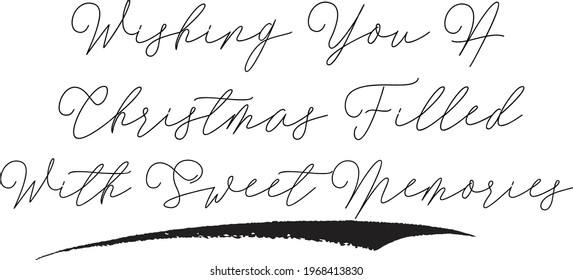 Wishing You A
Christmas Filled
With Sweet Memories
shutterstock.com · 1968413830